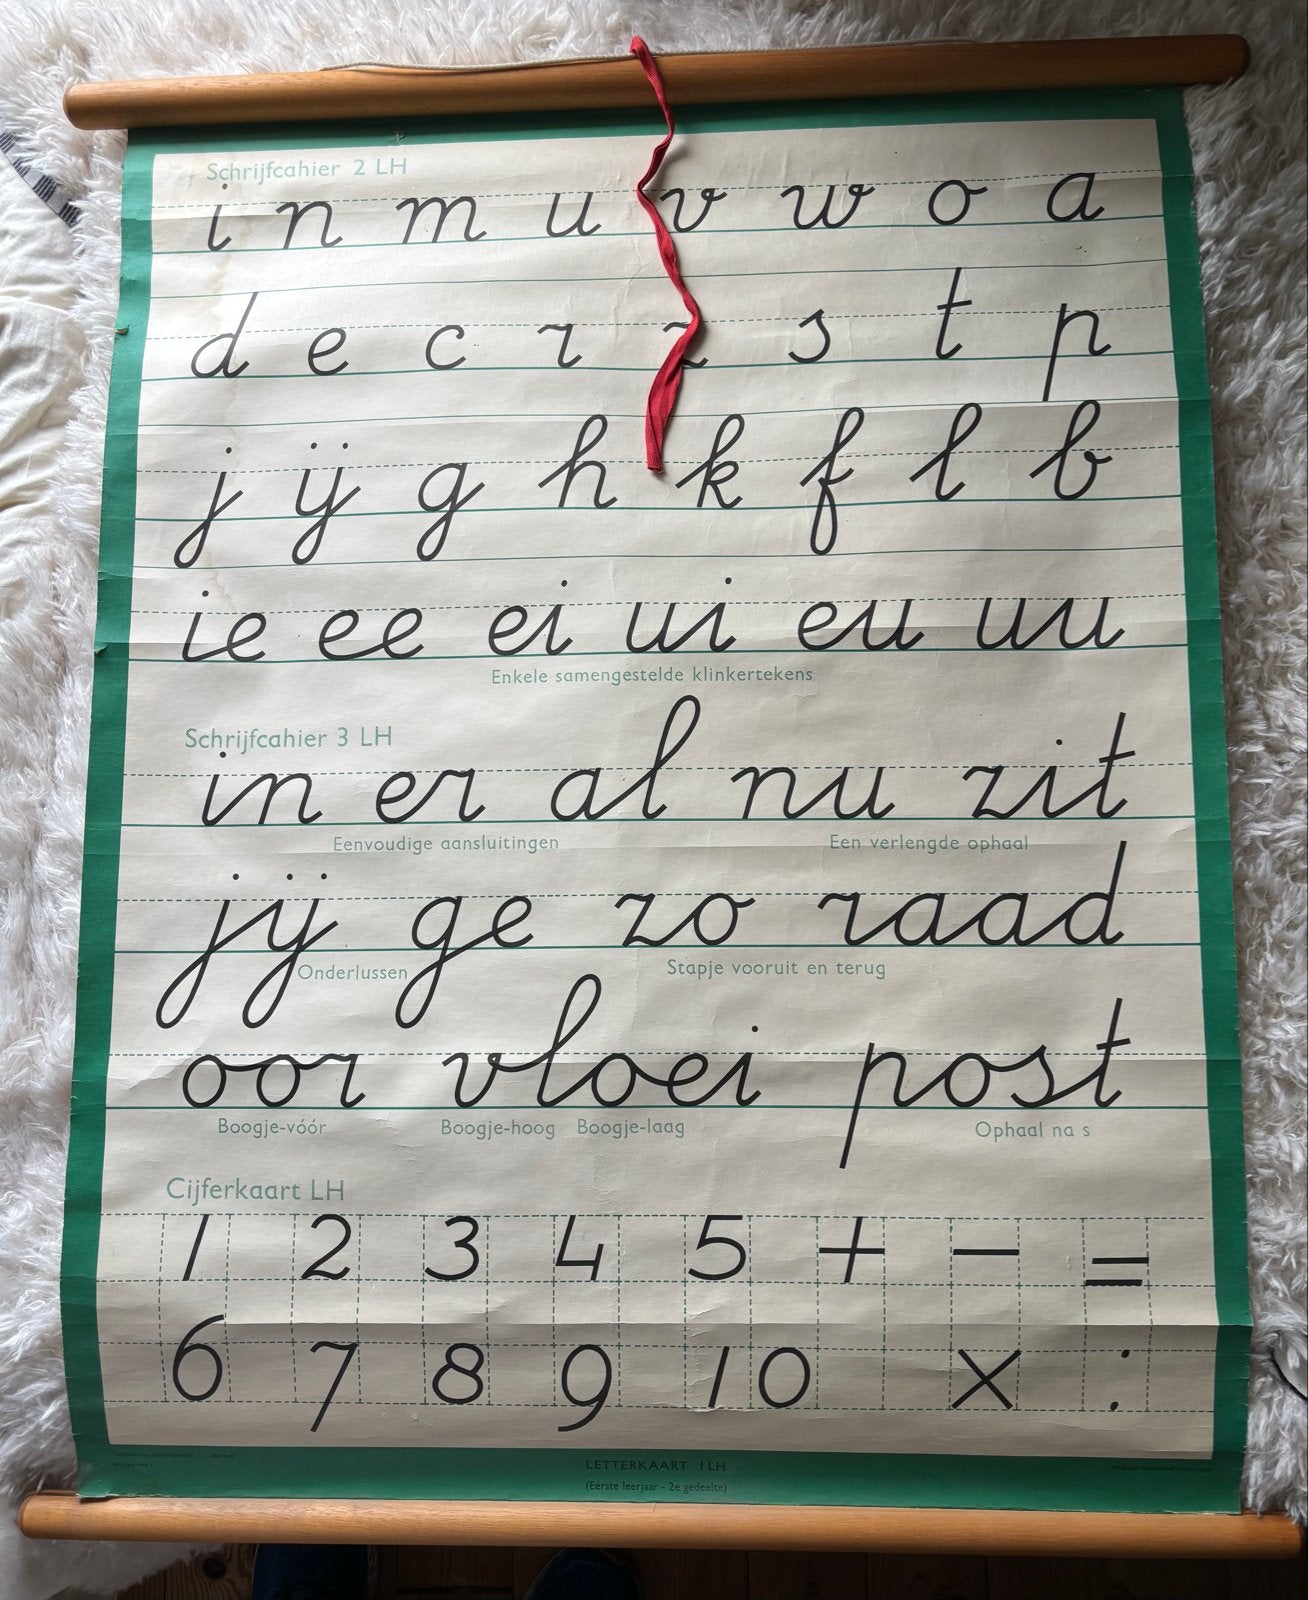 Schrijfcahier 2 LH
i n m u v w o a
d e c r z s t p
j ij g h k f l b
ie ee ei ui eu uu
Enkele samengestelde klinkertekens
Schrijfcahier 3 LH
in er al nu zit
Eenvoudige aansluitingen Een verlengde ophaal
jij ge zo raad
Onderlussen Stapje vooruit en terug
oor vloei post
Boogje-vóór Boogje-hoog Boogje-laag Ophaal na s
Cijferkaart LH
1 2 3 4 5 + − =
6 7 8 9 10 × :
LETTERKAART 1 LH
(Eerste leerjaar - 2e gedeelte)